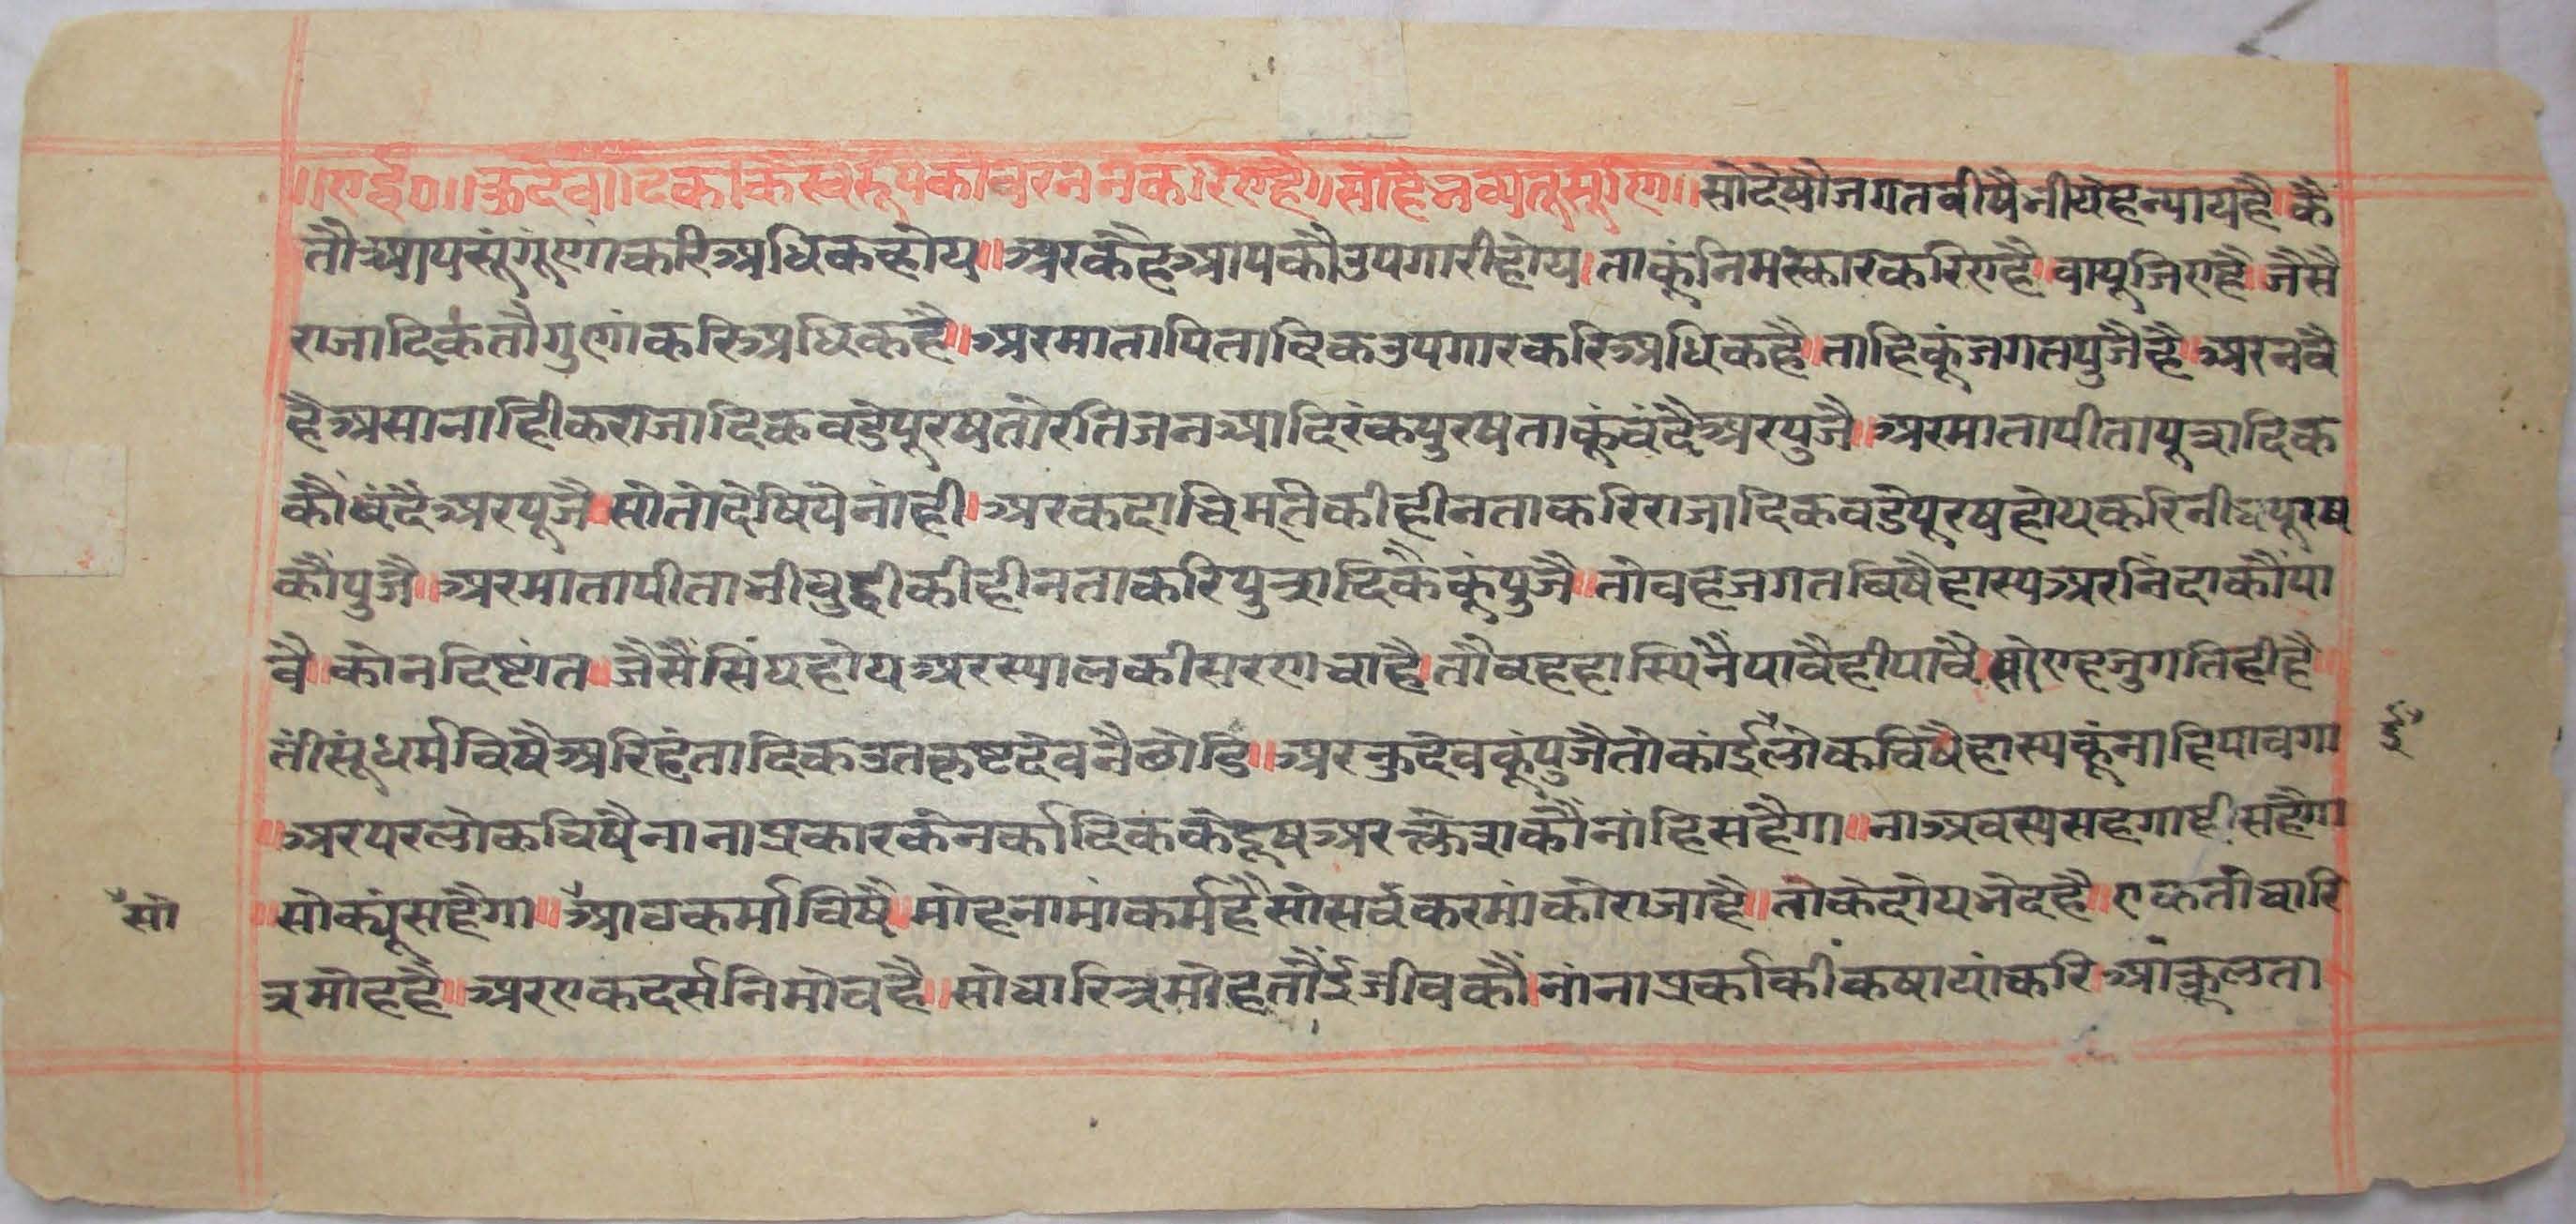 ॥एर्द्द०॥कुदेवादिककिस्वरूपकावरननकरिएहै॥सोहेभव्यतूसुणि॥सोदेषोजगतवीषैभीयेहन्यायहै कै
तौआपसूंगूणांकरिअधिकहोय॥अरकैहआपकौउपगारीहोय।ताकूंनिमस्कारकरिएहै।वापूजिएहै।जैसै
राजादिकतौगुणांकरिअधिकहै॥अरमातापितादिकउपगारकरिअधिकहै।ताहिकूंजगतपुजैहै।अरनवै
हैअसानाहिकराजादिकवडेपूरषतोरतिजनआदिरंकपुरषताकूंवंदैअरपुजै॥अरमातापीतापूत्रादिक
कौवंदैअरपूजै।सोतोदेषियेनांही।अरकदाचिमतकीहीनताकरिराजादिकवडेपूरषहोयकरिनीचपूरष
कौपुजै॥अरमातापीताभीबुद्धीकीहीनताकरिपुत्रादिककूंपुजै॥तोवहजगतविषैहास्यअरनिंदाकौंपा
वै॥कोनदिष्टांत॥जैसैसिंघहोयअरस्यालकीसरणचाहै।तौवहहास्यिनैपावैहीपावै।सोएहजुगतिहीहै
तींसूंधर्मविषैअरिहंतादिकउतकृष्टदेवनैछोडि॥अरकुदेवकूंपुजैतोकांईलोकविषैहास्यकूंनाहिपावगा ई
॥अरपरलोकविषैनानाप्रकारकेनर्कादिककेदूषअरक्लेशकौनांहिसहैगा॥नाअवस्यसहगाहीसहैगा
सो ॥सोक्यूंसहैगा॥आठकर्माविषै॥मोहनामांकर्महैसोसर्वकरमांकोराजाहै॥ताकेदोयभेदहै॥एकतोचारि
त्रमोहहै॥अरएकदर्सनिमोवहै॥सोचारित्रमोहतौईजीवकौ।नांनाप्रकांकीकषायांकरिआंकूलता